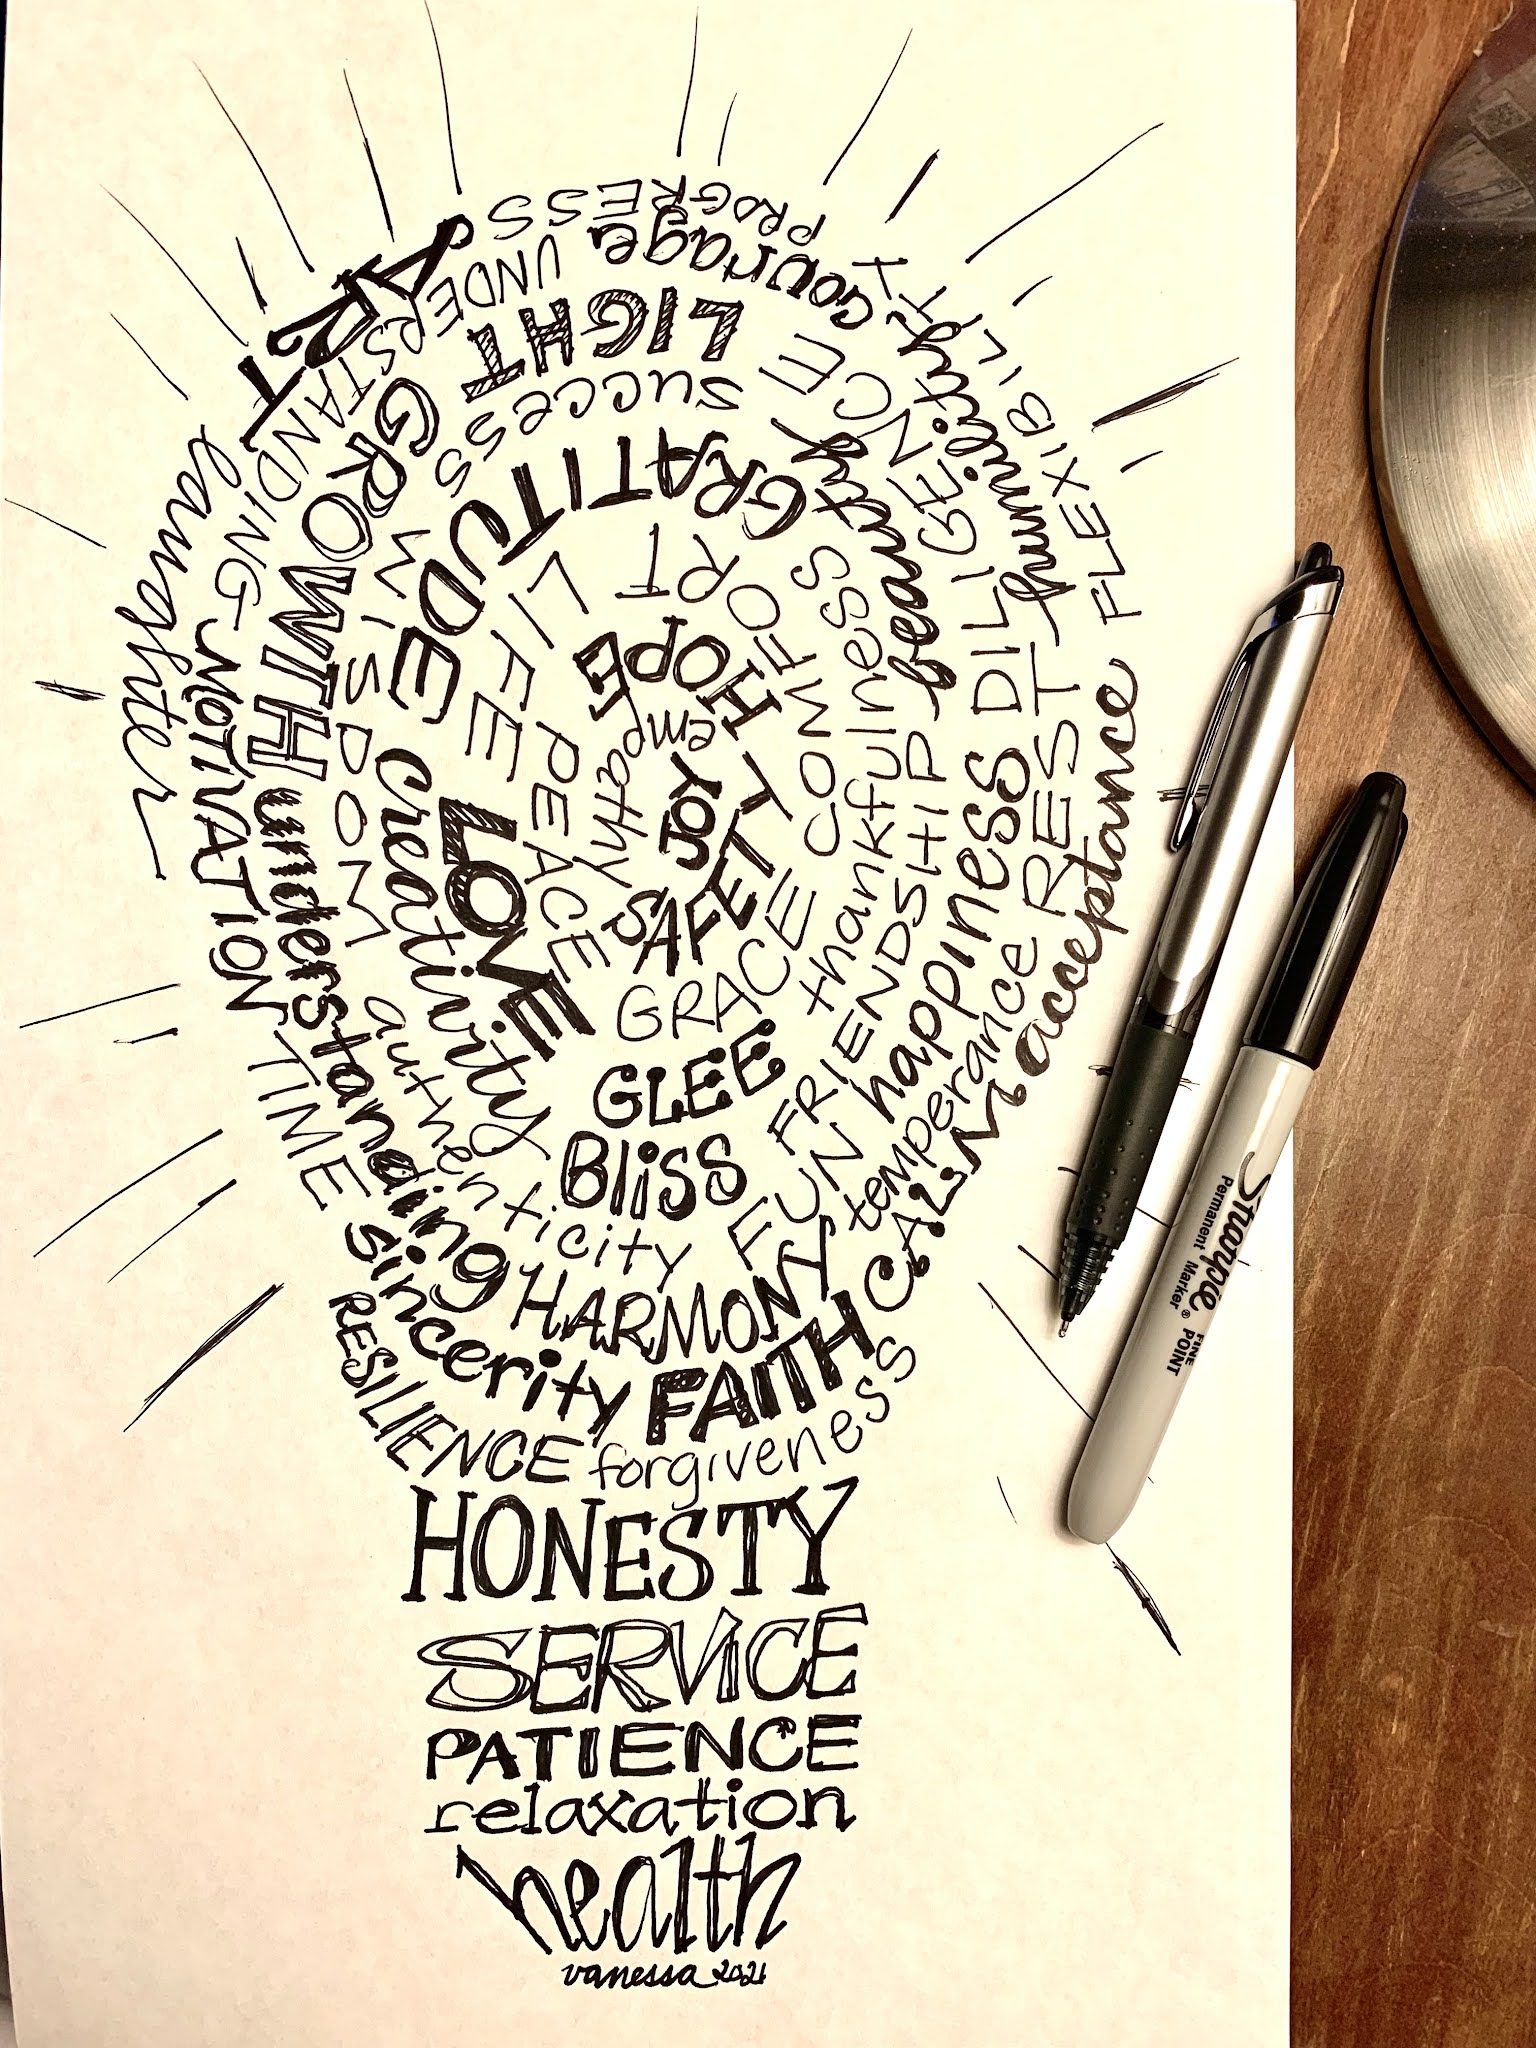 PROGRESS
Courage
UNDERSTANDING
ART
LIGHT
SUCCESS
GRATITUDE
GROWTH
WISDOM
laughter
MOTIVATION
understanding
TIME
creativity
authenticity
LOVE
LIFE
PEACE
HOPE
empathy
JOY
SAFETY
GRACE
COMFORT
thankfulness
beauty
FRIENDSHIP
DILIGENCE
humility
FLEXIBILITY
happiness
REST
temperance
acceptance
CALM
FUN
GLEE
BLiSS
HARMONY
sincerity
FAITH
RESILIENCE
forgiveness
HONESTY
SERViCE
PATIENCE
relaxation
health
vanessa 2021
Sharpie
Permanent Marker®
FINE
POINT